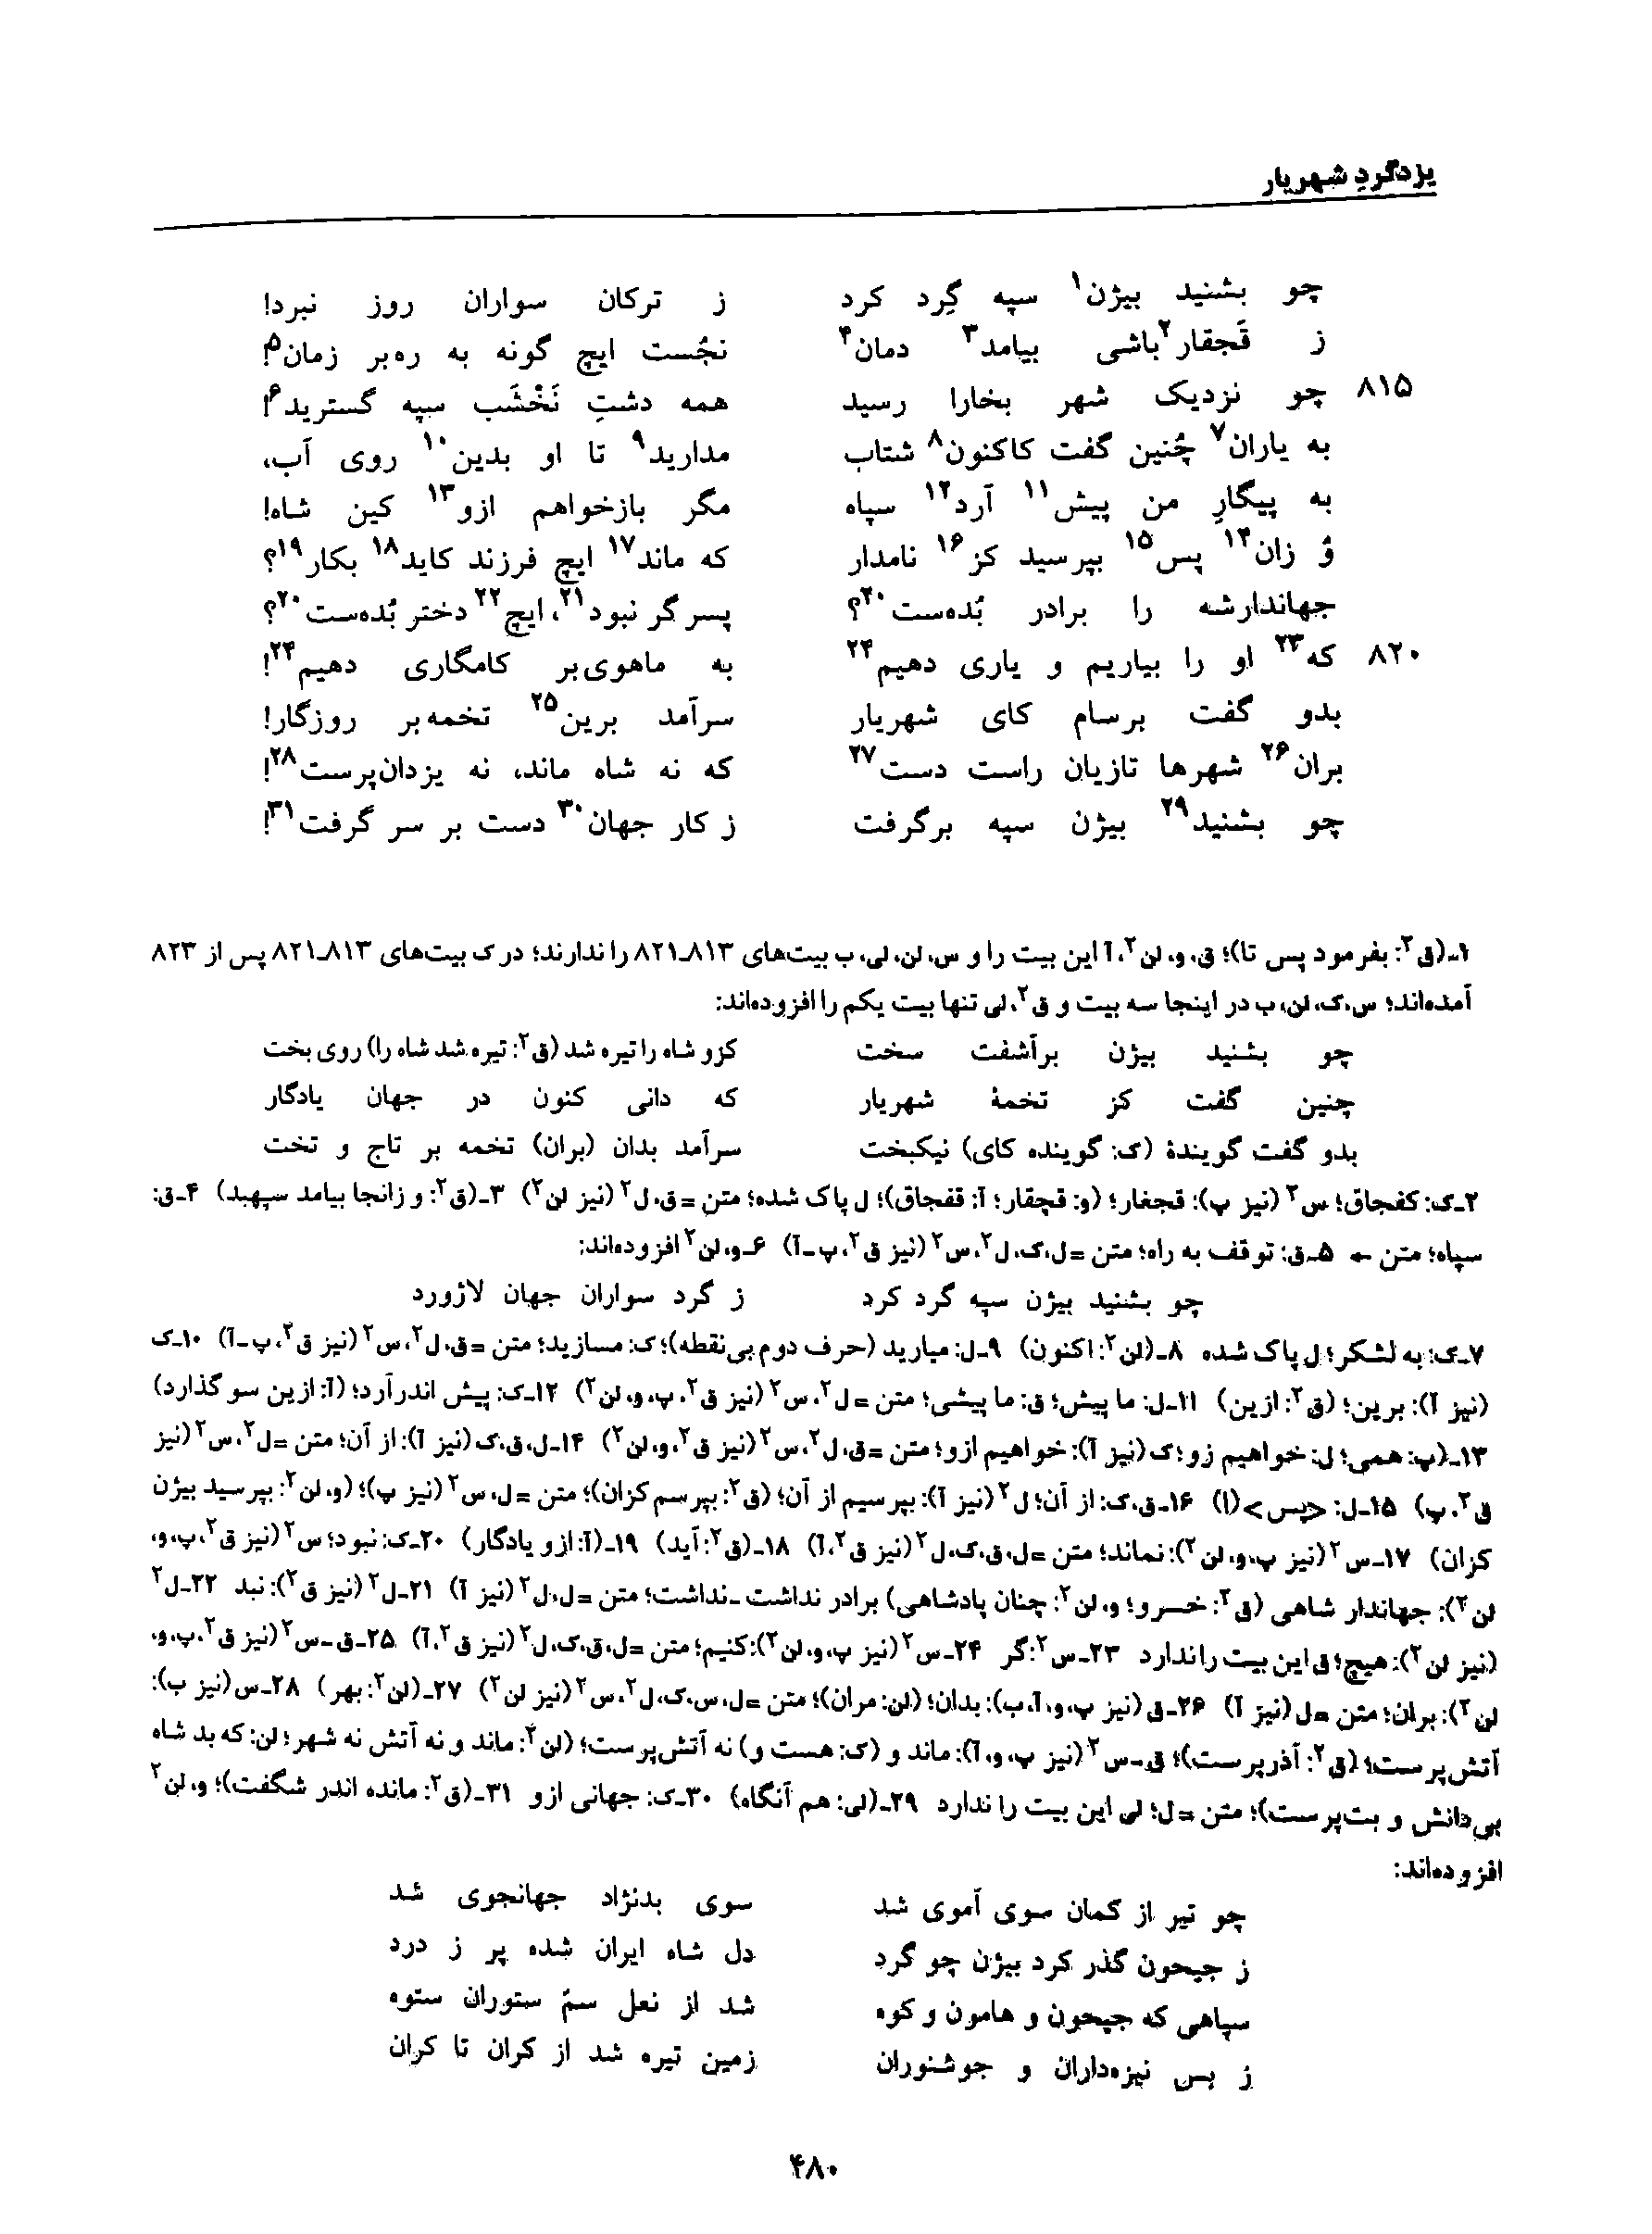 یزدگردِ شهریار
چو بشنید بیژن۱ سپه گِرد کرد ز ترکان سواران روز نبرد!
ز قَجقار۲باشی بیامد۳ دمان۴ نجُست ایچ گونه به ره‌بر زمان۵!
۸۱۵ چو نزدیک شهر بخارا رسید همه دشتِ نَخْشَب سپه گسترید۶!
به یاران۷ چُنین گفت کاکنون۸ شتاب مدارید۹ تا او بدین۱۰ روی آب،
به پیگارِ من پیش۱۱ آرد۱۲ سپاه مگر بازخواهم ازو۱۳ کین شاه!
وُ زان۱۴ پس۱۵ بپرسید کز۱۶ نامدار که ماند۱۷ ایچ فرزند کاید۱۸ بکار۱۹؟
جهاندارشه را برادر بُده‌ست۲۰؟ پسر گر نبود۲۱، ایچ۲۲ دختر بُده‌ست۲۰؟
۸۲۰ که۲۳ او را بیاریم و یاری دهیم۲۴ به ماهوی‌بر کامگاری دهیم۲۴!
بدو گفت برسام کای شهریار سرآمد برین۲۵ تخمه‌بر روزگار!
بران۲۶ شهرها تازیان راست دست۲۷ که نه شاه ماند، نه یزدان‌پرست۲۸!
چو بشنید۲۹ بیژن سپه برگرفت ز کار جهان۳۰ دست بر سر گرفت۳۱!
۱ـ(ق۲: بفرمود پس تا)؛ ق، و، لن۲، آ این بیت را و س، لن، لی، ب بیت‌های ۸۱۳ـ۸۲۱ را ندارند؛ در ک بیت‌های ۸۱۳ـ۸۲۱ پس از ۸۲۳
آمده‌اند؛ س، ک، لن، ب در اینجا سه بیت و ق۲، لی تنها بیت یکم را افزوده‌اند:
چو بشنید بیژن برآشفت سخت کزو شاه را تیره شد (ق۲: تیره شد شاه را) روی بخت
چنین گفت کز تخمهٔ شهریار که دانی کنون در جهان یادگار
بدو گفت گویندهٔ (ک: گوینده کای) نیکبخت سرآمد بدان (بران) تخمه بر تاج و تخت
۲ـک: کفجاق؛ س۲ (نیز پ): قجغار؛ (و: قچقار؛ آ: قفجاق)؛ ل پاک شده؛ متن =ق، ل۲ (نیز لن۲) ۳ـ(ق۲: و زانجا بیامد سپهبد) ۴ـق:
سپاه؛ متن ← ۵ـق: توقف به راه؛ متن =ل، ک، ل۲، س۲ (نیز ق۲، پ-آ) ۶ـو، لن۲ افزوده‌اند:
چو بشنید بیژن سپه گرد کرد ز گرد سواران جهان لاژورد
۷ـک: به لشکر؛ ل پاک شده ۸ـ(لن۲: اکنون) ۹ـل: میارید (حرف دوم بی‌نقطه)؛ ک: مسازید؛ متن =ق، ل۲، س۲ (نیز ق۲، پ-آ) ۱۰ـک
(نیز آ): برین؛ (ق۲: ازین) ۱۱ـل: ما پیش؛ ق: ما پیشی؛ متن =ل۲، س۲ (نیز ق۲، پ، و، لن۲) ۱۲ـک: پیش اندر آرد؛ (آ: ازین سو گذارد)
۱۳ـ(پ: همی؛ ل: خواهیم زو؛ ک (نیز آ): خواهیم ازو؛ متن =ق، ل۲، س۲ (نیز ق۲، و، لن۲) ۱۴ـل، ق، ک (نیز آ): از آن؛ متن =ل۲، س۲ (نیز
ق۲، پ) ۱۵ـل: <پس>(ا) ۱۶ـق، ک: از آن؛ ل۲ (نیز آ): بپرسیم از آن؛ (ق۲: بپرسم کزان)؛ متن =ل، س۲ (نیز پ)؛ (و، لن۲: بپرسید بیژن
کزان) ۱۷ـس۲ (نیز پ، و، لن۲): نماند؛ متن =ل، ق، ک، ل۲ (نیز ق۲، آ) ۱۸ـ(ق۲: آید) ۱۹ـ(آ: ازو یادگار) ۲۰ـک: نبود؛ س۲ (نیز ق۲، پ، و،
لن۲): جهاندار شاهی (ق۲: خسرو؛ و، لن۲: چنان پادشاهی) برادر نداشت ـنداشت؛ متن =ل، ل۲ (نیز آ) ۲۱ـل۲ (نیز ق۲): نبد ۲۲ـل۲
(نیز لن۲): هیچ؛ ق این بیت را ندارد ۲۳ـس۲: گر ۲۴ـس۲ (نیز پ، و، لن۲): کنیم؛ متن =ل، ق، ک، ل۲ (نیز ق۲، آ) ۲۵ـق-س۲ (نیز ق۲، پ، و،
لن۲): بران؛ متن =ل (نیز آ) ۲۶ـق (نیز پ، و، آ، ب): بدان؛ (لن: مران)؛ متن =ل، س، ک، ل۲، س۲ (نیز لن۲) ۲۷ـ(لن۲: بهر) ۲۸ـس (نیز ب):
آتش‌پرست؛ (ق۲: آذرپرست)؛ ق-س۲ (نیز پ، و، آ): ماند و (ک: هست و) نه آتش‌پرست؛ (لن۲: ماند و نه آتش نه شهر؛ لن: که بد شاه
بی‌دانش و بت‌پرست)؛ متن =ل؛ لی این بیت را ندارد ۲۹ـ(لی: هم آنگاه) ۳۰ـک: جهانی ازو ۳۱ـ(ق۲: مانده اندر شگفت)؛ و، لن۲
افزوده‌اند:
چو تیر از کمان سوی آموی شد سوی بدنژاد جهانجوی شد
ز جیحون گذر کرد بیژن چو گرد دل شاه ایران شده پر ز درد
سپاهی که جیحون و هامون و کوه شد از نعل سمّ ستوران ستوه
ز بس نیزه‌داران و جوشنوران زمین تیره شد از کران تا کران
۴۸۰